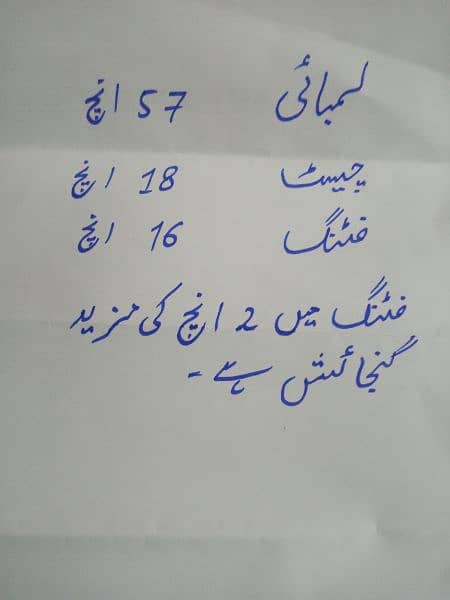 لمبائی 57 انچ
چیسٹ 18 انچ
فٹنگ 16 انچ
فٹنگ میں 2 انچ کی مزید
گنجائش ہے -